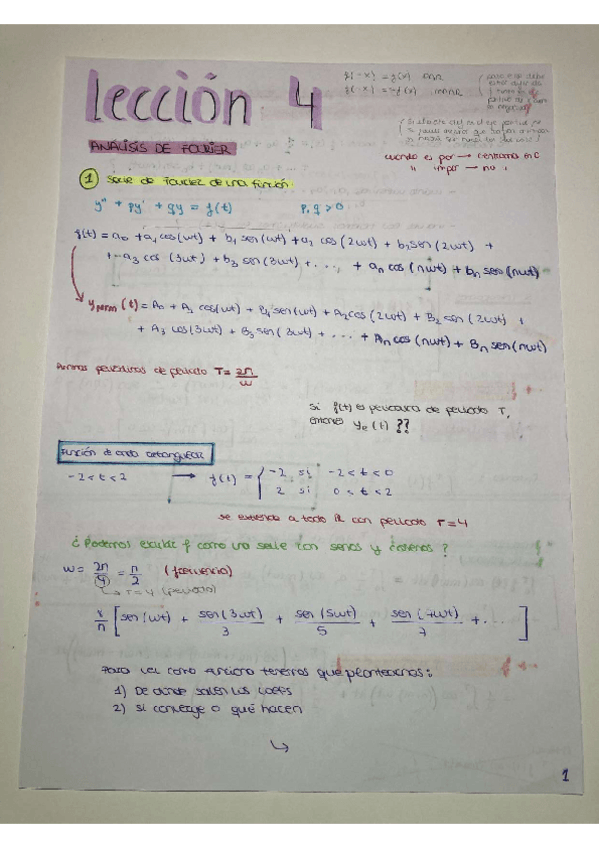 lección 4
f(-x) = f(x) PAR
f(-x) = -f(x) IMPAR
ANÁLISIS DE FOURIER
cuando es par → centramos en 0
" impar → no "
1 Serie de Fourier de una función:
y'' + py' + qy = f(t) p, q > 0
f(t) = a₀ + a₁ cos(wt) + b₁ sen(wt) + a₂ cos(2wt) + b₂ sen(2wt) +
+ a₃ cos(3wt) + b₃ sen(3wt) + ..., + aₙ cos(nwt) + bₙ sen(nwt)
(t) = A₀ + A₁ cos(wt) + B₁ sen(wt) + A₂ cos(2wt) + B₂ sen(2wt) +
+ A₃ cos(3wt) + B₃ sen(3wt) + ... + Aₙ cos(nwt) + Bₙ sen(nwt)
periódicas de periodo T = 2π/w
Si f(t) es periódica de periodo T,
entonces yₑ(t) ??
Función de onda rectangular
-2 < t < 2 → f(t) = { -2 si -2 < t < 0
2 si 0 < t < 2
se extiende a todo ℝ con periodo T = 4
¿Podemos escribir f como una serie con senos y cosenos?
w = 2π/4 = π/2 (frecuencia)
→ T = 4 (periodo)
8/π [sen(wt) + sen(3wt)/3 + sen(5wt)/5 + sen(7wt)/7 + ...]
Para ver como funciona tenemos que plantearnos:
1) De donde salen los coefs
2) Si converge o qué hacen
1